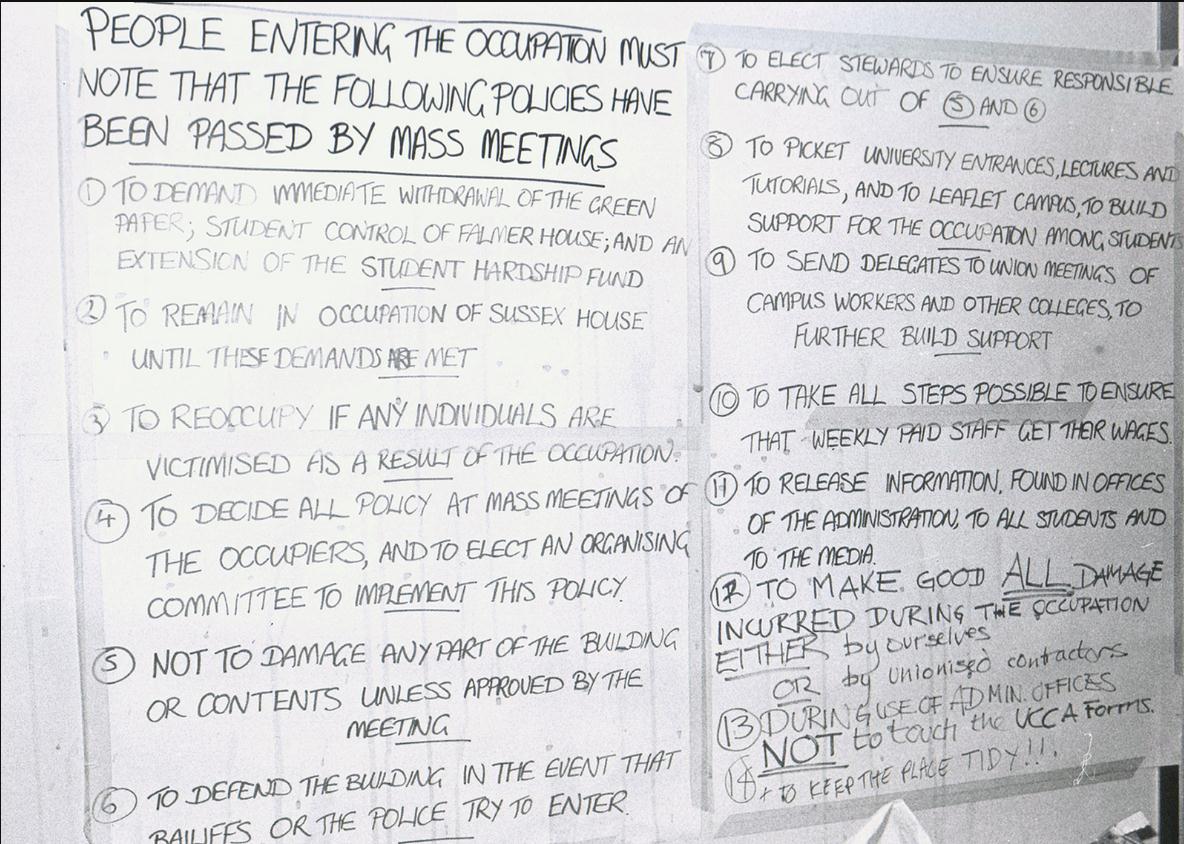 PEOPLE ENTERING THE OCCUPATION MUST
NOTE THAT THE FOLLOWING POLICIES HAVE
BEEN PASSED BY MASS MEETINGS
① TO DEMAND IMMEDIATE WITHDRAWAL OF THE GREEN
PAPER; STUDENT CONTROL OF FALMER HOUSE; AND AN
EXTENSION OF THE STUDENT HARDSHIP FUND
② TO REMAIN IN OCCUPATION OF SUSSEX HOUSE
UNTIL THESE DEMANDS ARE MET
③ TO REOCCUPY IF ANY INDIVIDUALS ARE
VICTIMISED AS A RESULT OF THE OCCUPATION.
④ TO DECIDE ALL POLICY AT MASS MEETINGS OF
THE OCCUPIERS, AND TO ELECT AN ORGANISING
COMMITTEE TO IMPLEMENT THIS POLICY.
⑤ NOT TO DAMAGE ANY PART OF THE BUILDING
OR CONTENTS UNLESS APPROVED BY THE
MEETING
⑥ TO DEFEND THE BUILDING IN THE EVENT THAT
BAILIFFS OR THE POLICE TRY TO ENTER.
⑦ TO ELECT STEWARDS TO ENSURE RESPONSIBLE
CARRYING OUT OF ⑤ AND ⑥
⑧ TO PICKET UNIVERSITY ENTRANCES, LECTURES AND
TUTORIALS, AND TO LEAFLET CAMPUS, TO BUILD
SUPPORT FOR THE OCCUPATION AMONG STUDENTS
⑨ TO SEND DELEGATES TO UNION MEETINGS OF
CAMPUS WORKERS AND OTHER COLLEGES, TO
FURTHER BUILD SUPPORT
⑩ TO TAKE ALL STEPS POSSIBLE TO ENSURE
THAT WEEKLY PAID STAFF GET THEIR WAGES.
⑪ TO RELEASE INFORMATION, FOUND IN OFFICES
OF THE ADMINISTRATION, TO ALL STUDENTS AND
TO THE MEDIA.
⑫ TO MAKE GOOD ALL DAMAGE
INCURRED DURING THE OCCUPATION
EITHER by ourselves
OR by unionised contactors
⑬ DURING USE OF ADMIN. OFFICES
NOT to touch the UCCA Forms.
⑭ + TO KEEP THE PLACE TIDY!!.